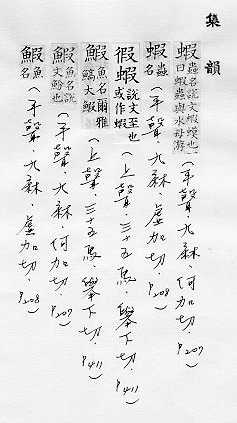 集韻
蝦蟲名說文蝦蟆也一曰蝦蟲與水母游(平聲.九麻.何加切.P207)
蝦蟲名(平聲.九麻.虛加切.P208)
徦蝦說文至也或作蝦(上聲.三十五馬.舉下切.P411)
鰕魚名爾雅鰝大鰕(上聲.三十五馬.舉下切.P411)
鰕魚名說文魵也(平聲.九麻.何加切.P207)
鰕魚名(平聲.九麻.虛加切.P208)